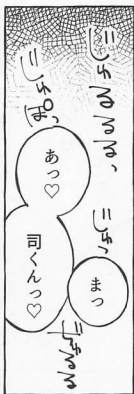 じゅるるる、
じゅぽっ
あっ♡
じゅっ
まっ
司くんっ♡
じゅるる